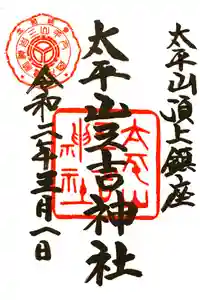 太平山頂上鎮座
太平山三吉神社
令和二年三月一日
太平山
神社